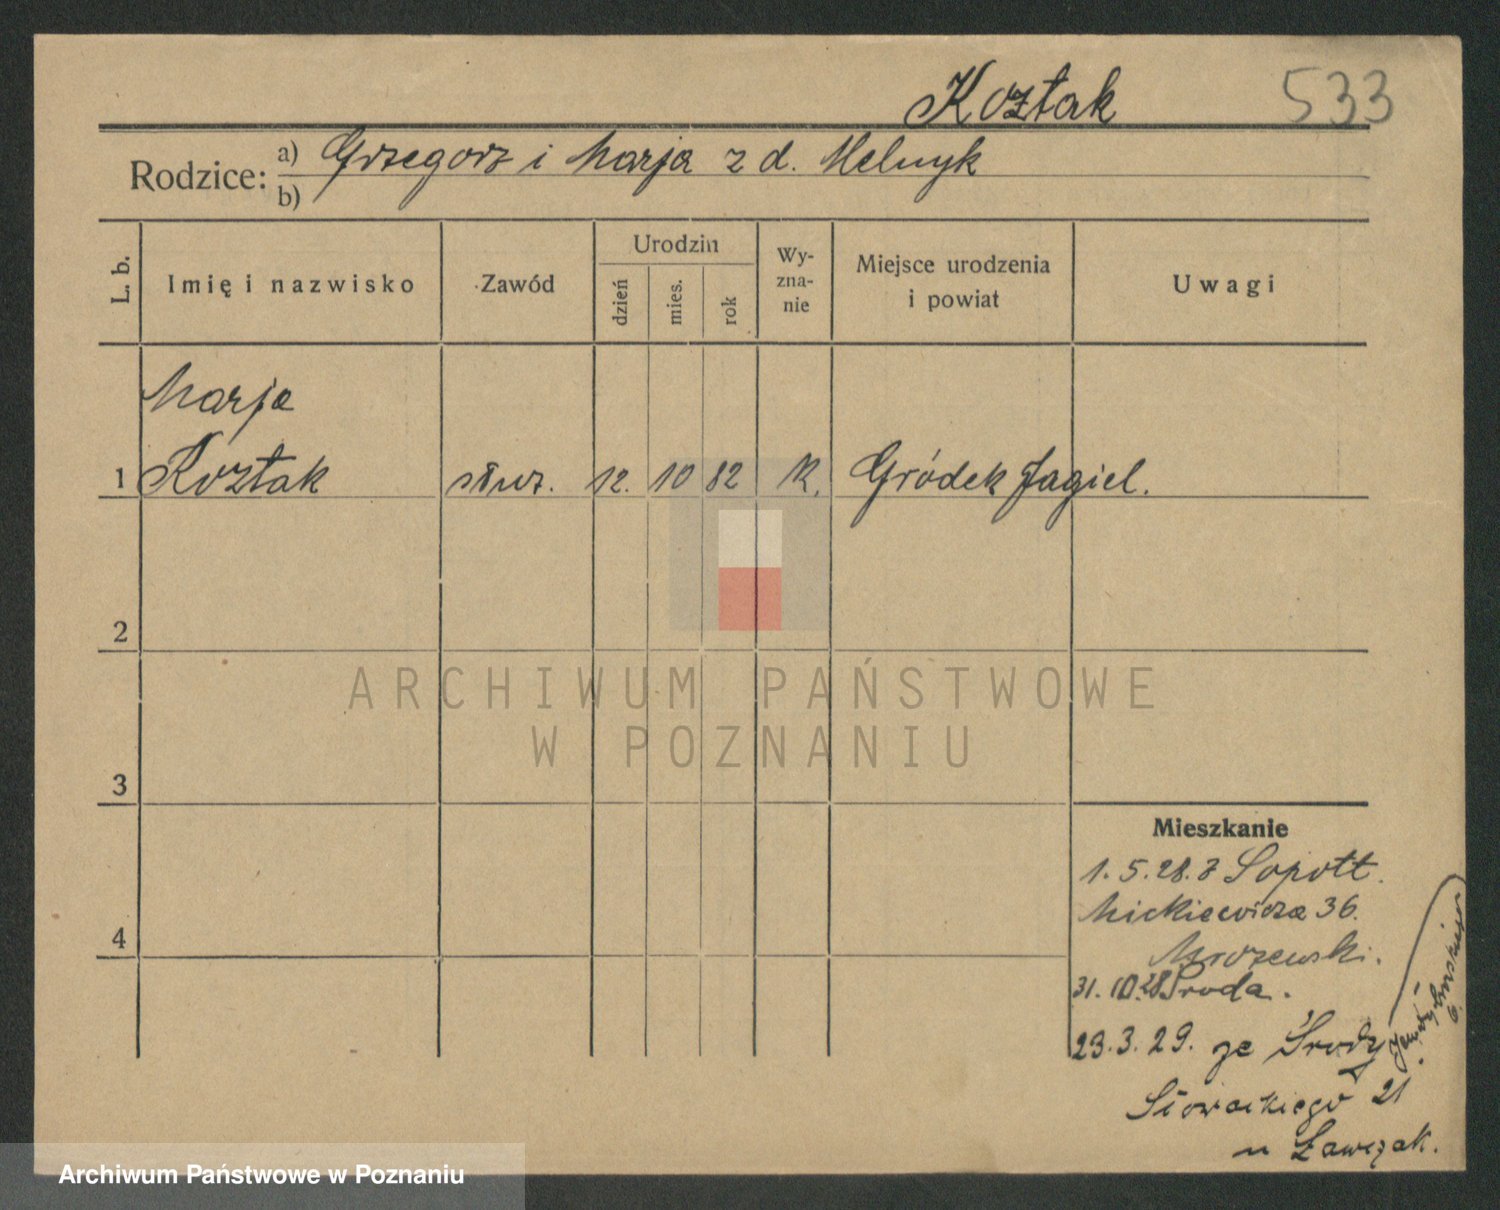 Koztak 533
Rodzice: a) Grzegorz i Marja z d. Melnyk
b)
L. b. Imię i nazwisko Zawód Urodzin dzień mies. rok Wyzna-nie Miejsce urodzenia i powiat Uwagi
Marja
1 Koztak służ. 12. 10 82 K. Gródek Jagiel.
2
3
4
Mieszkanie
1.5.28. z Sopott.
Mickiewicza 36.
Mrozewski.
31.10.28 Środa.
23.3.29. ze Środy
Słowackiego 21
u Ławczak.
ARCHIWUM PAŃSTWOWE
W POZNANIU
Archiwum Państwowe w Poznaniu